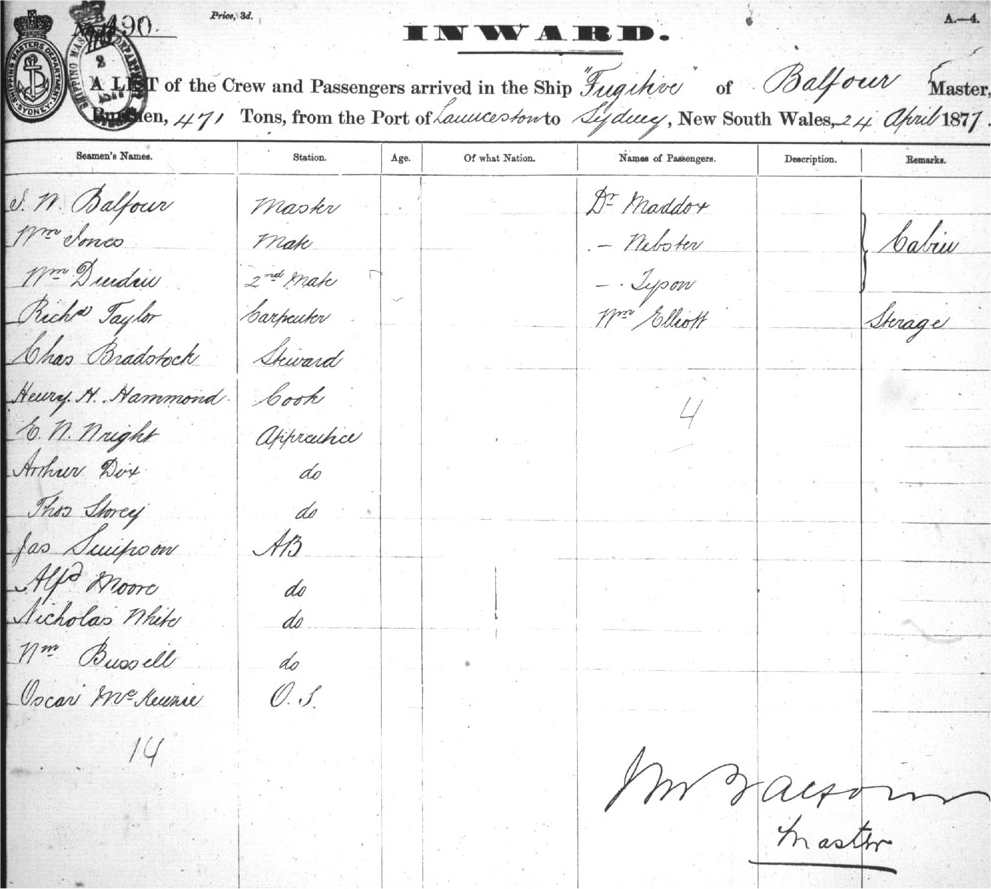 No. 490.
Price, 3d.
A.—4.
INWARD.
A LIST of the Crew and Passengers arrived in the Ship "Fugitive" of Balfour Master,
Burthen, 471 Tons, from the Port of Launceston to Sydney, New South Wales, 24 April 1877.
Seamen's Names. Station. Age. Of what Nation. Names of Passengers. Description. Remarks.
J. W. Balfour Master Dr Maddox
Wm Jones Mate — Webster Cabin
Wm Durdin 2nd Mate — Tyson
Richd Taylor Carpenter Wm Elliott Sterage
Chas Bradstock Steward
Henry. H. Hammond Cook 4
E. W. Wright Apprentice
Arthur Dix do
Thos Storey do
Jas Simpson AB
Alfd Moore do
Nicholas White do
Wm Bussell do
Oscar McKenzie O.S.
14
JW Balfour
Master